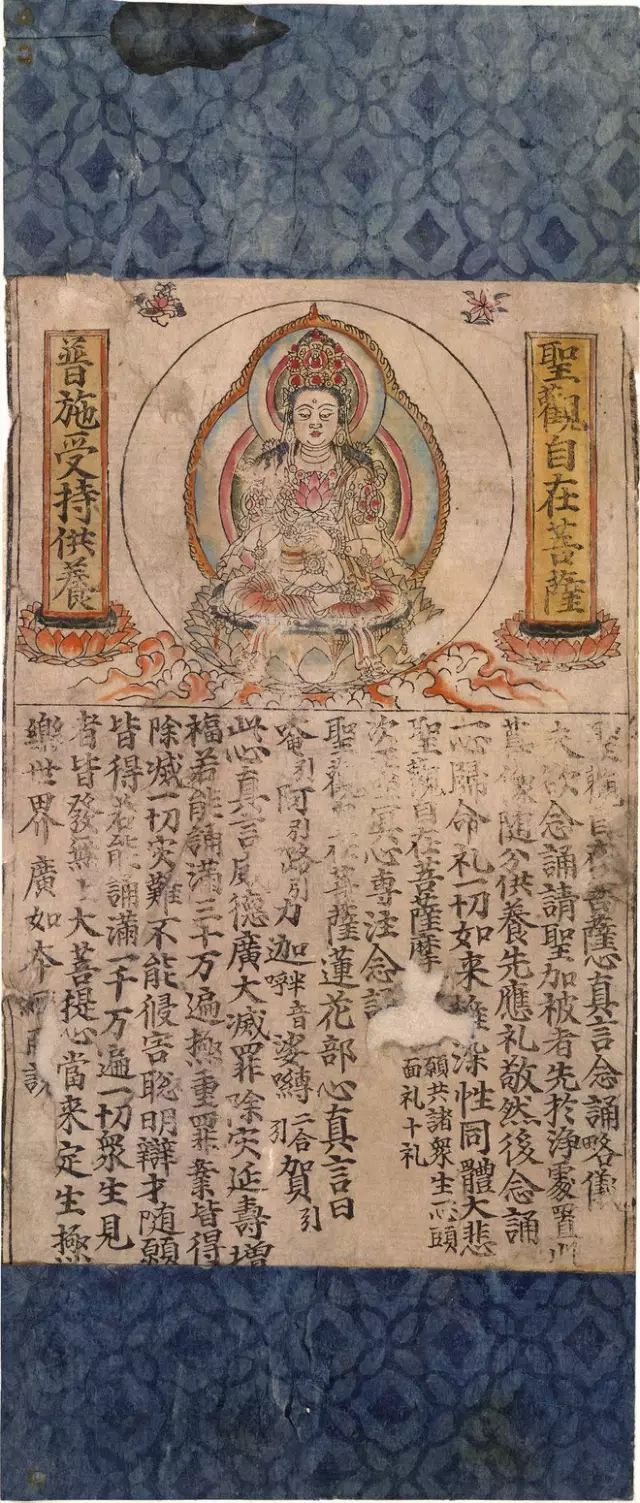 聖觀自在菩薩
普施受持供養
聖觀自在菩薩心真言念誦略儀
夫欲念誦請聖加被者先於淨處置此
尊像隨分供養先應礼敬然後念誦
一心歸命礼一切如来離染性同體大悲
聖觀自在菩薩摩
願共諸衆生一心頭
面礼十礼
次 冥心專注念誦
聖觀自在菩薩蓮花部心真言曰
唵引阿引路引力迦半音呼娑嚩二合引賀引
此心真言威德廣大滅罪除灾延壽增
福若能誦滿三十万遍極重罪業皆得
除滅一切灾難不能侵害聡明辯才随願
皆得若能誦滿一千万遍一切衆生見
者皆發無上大菩提心當来定生極
樂世界廣如本經所說